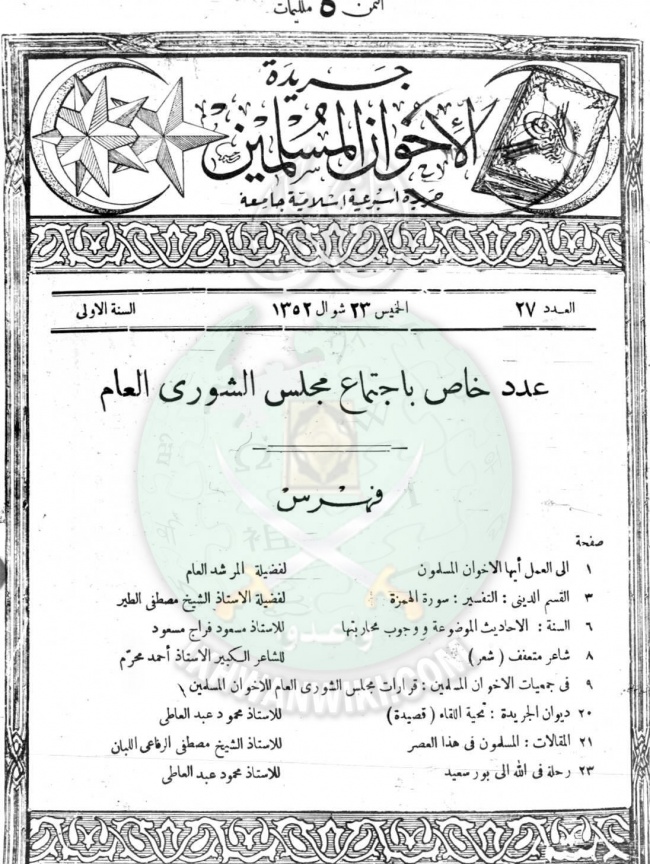 الثمن ٥ مليمات
جريدة
الإخوان المسلمين
جريدة أسبوعية إسلامية جامعة
العدد ٢٧ الخميس ٢٣ شوال ١٣٥٢ السنة الاولى
عدد خاص باجتماع مجلس الشورى العام
فهرس
صفحة
١ الى العمل أيها الاخوان المسلمون لفضيلة المرشد العام
٣ القسم الدينى : التفسير : سورة الهمزة لفضيلة الاستاذ الشيخ مصطفى الطير
٦ السنة : الاحاديث الموضوعة ووجوب محاربتها للاستاذ مسعود فراج مسعود
٨ شاعر متعفف ( شعر ) للشاعر الكبير الاستاذ أحمد محرم
٩ فى جمعيات الاخوان المسلمين : قرارات مجلس الشورى العام للاخوان المسلمين
٢٠ ديوان الجريدة : تحية اللقاء ( قصيدة ) للاستاذ محمود عبد العاطى
٢١ المقالات : المسلمون فى هذا العصر للاستاذ الشيخ مصطفى الرفاعى اللبان
٢٣ رحلة فى الله الى بور سعيد للاستاذ محمود عبد العاطى
وأعدوا
IKHWANWIKI.COM